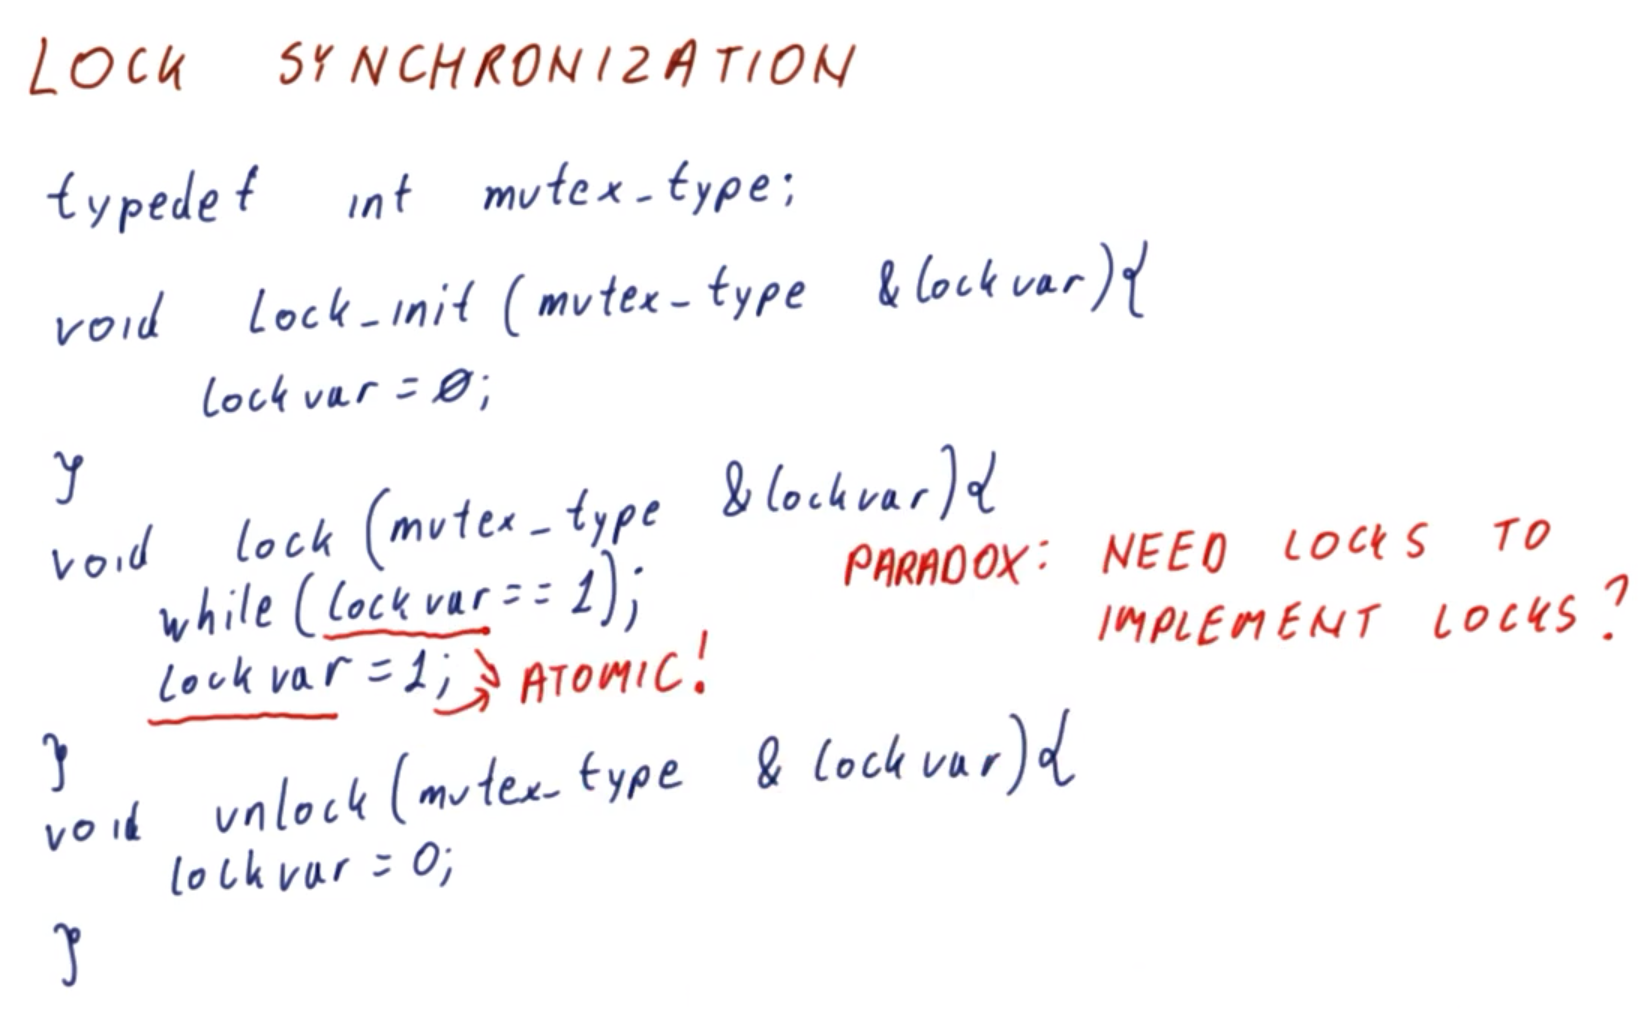 LOCK SYNCHRONIZATION
typedef int mutex_type;
void lock_init (mutex_type &lockvar){
lockvar = 0;
}
void lock (mutex_type &lockvar){
while (lockvar == 1);
PARADOX: NEED LOCKS TO
IMPLEMENT LOCKS?
lockvar = 1; ATOMIC!
}
void unlock (mutex_type &lockvar){
lockvar = 0;
}